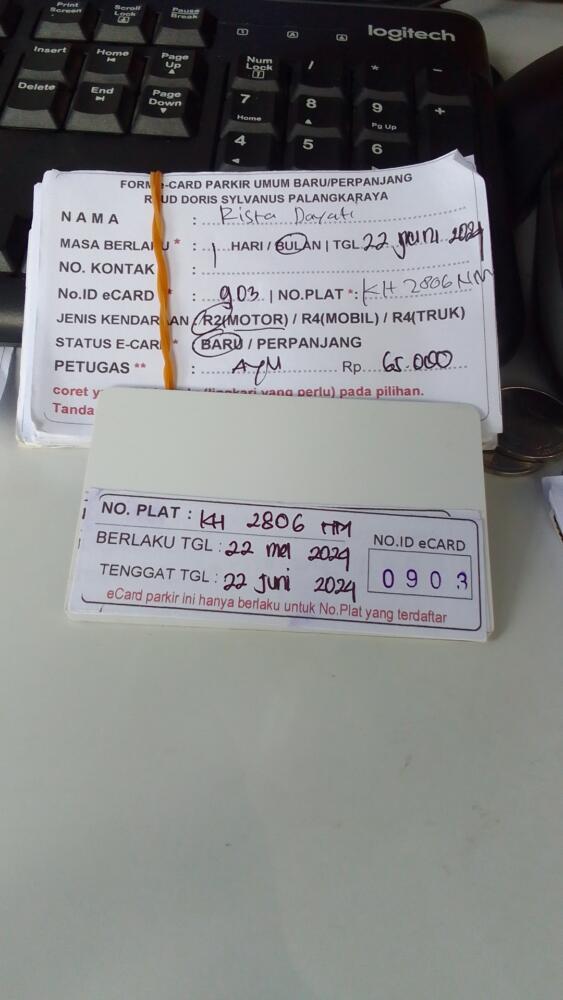 Print Screen
Scroll Lock
Pause Break
logitech
Insert
Home
Page Up
Num Lock
/
*
-
Delete
End
Page Down
7 Home
8
9 Pg Up
+
4
5
6
FORM e-CARD PARKIR UMUM BARU/PERPANJANG
R UD DORIS SYLVANUS PALANGKARAYA
NAMA : Rista Dayati
MASA BERLAKU * : 1 HARI / BULAN | TGL 22 juni 2024
NO. KONTAK :
No.ID eCARD * : 903 | NO.PLAT *: KH 2806 NM
JENIS KENDARAAN /R2(MOTOR) / R4(MOBIL) / R4(TRUK)
STATUS E-CARD * BARU / PERPANJANG
PETUGAS ** : AyM Rp 65.000
coret y (lingkari yang perlu) pada pilihan.
Tanda
NO. PLAT : KH 2806 HM
BERLAKU TGL : 22 mei 2024
TENGGAT TGL : 22 juni 2024
NO.ID eCARD
0903
eCard parkir ini hanya berlaku untuk No.Plat yang terdaftar